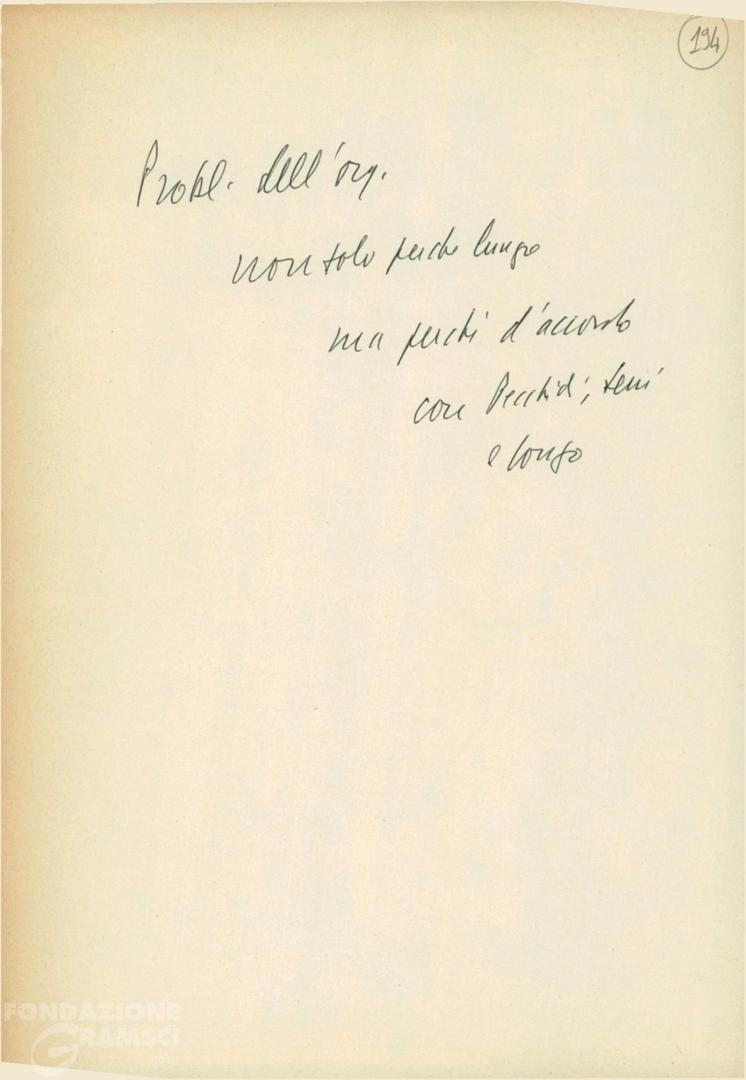 194
Probl. dell'org.
non solo perche lungo
ma perchè d'accordo
con Pecchioli,
e Longo
FONDAZIONE
GRAMSCI